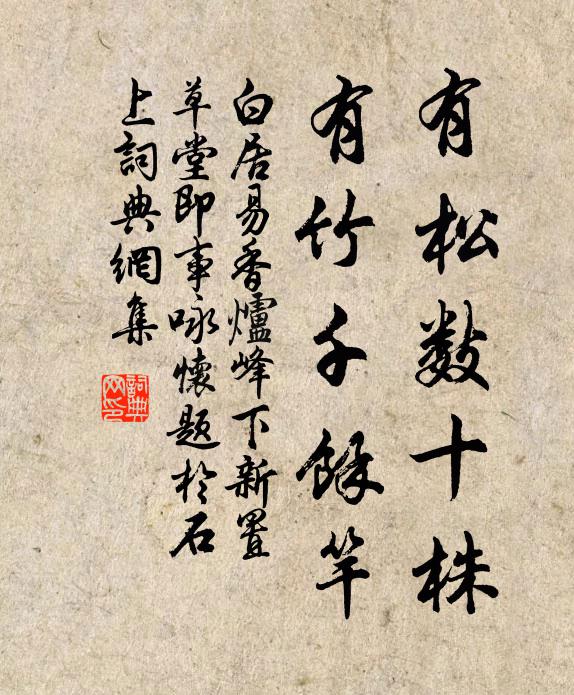 有松數十株
有竹千餘竿
白居易香爐峰下新置
草堂即事咏懷題於石
上詞典網集
詞典网印